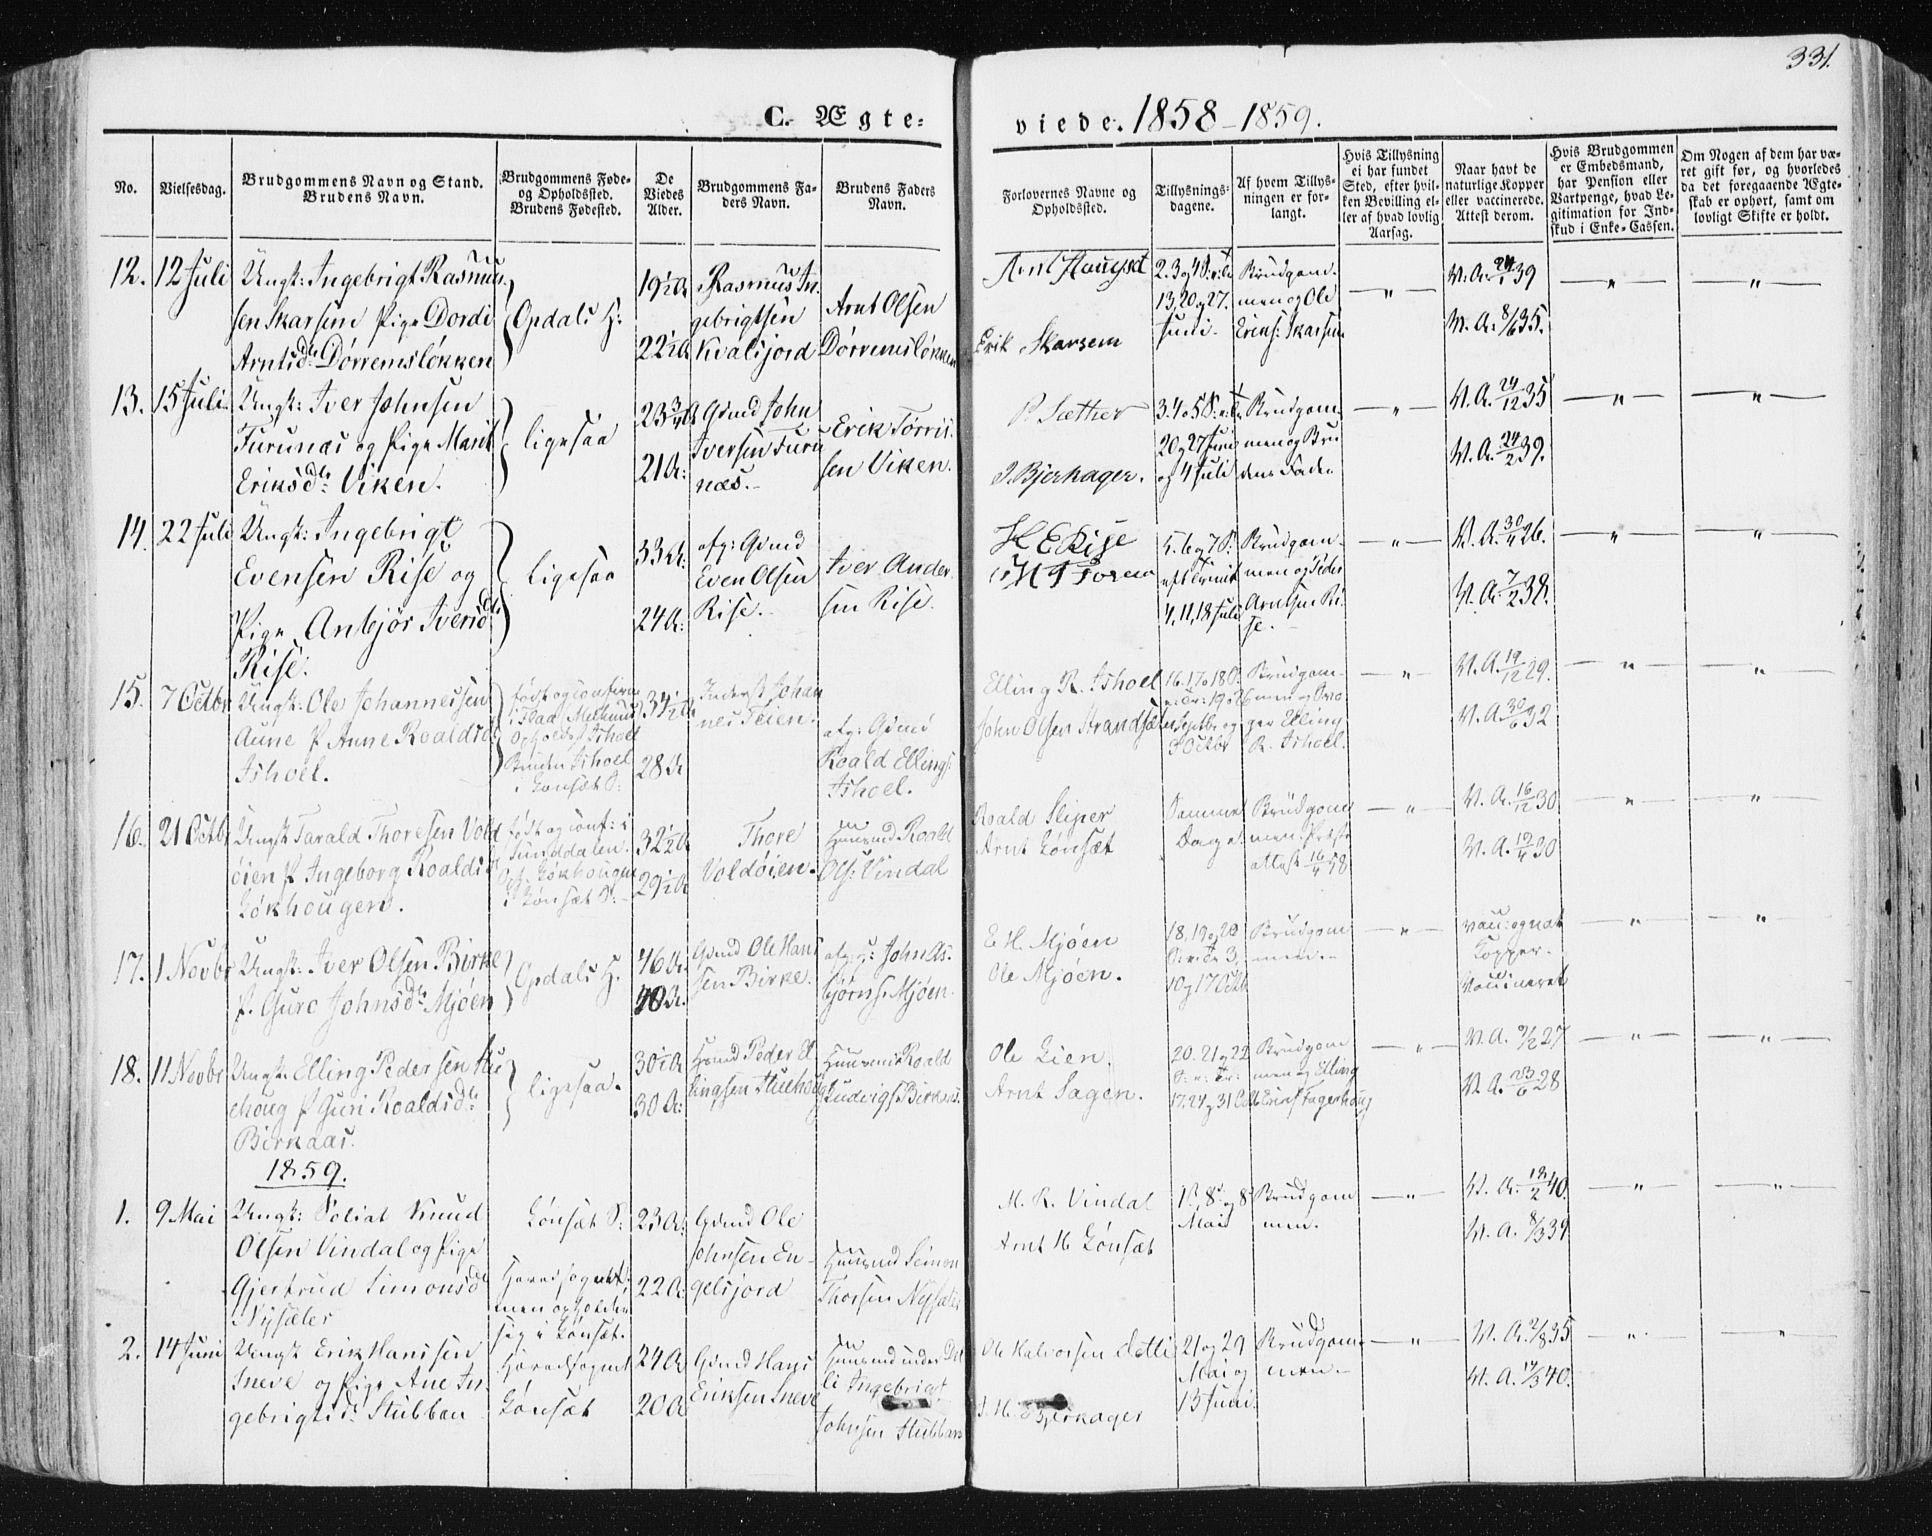 331.
C. Ægte-
viede. 1858-1859.
No.
Vielsesdag.
Brudgommens Navn og Stand.
Brudens Navn.
Brudgommens Føde-
og Opholdssted.
Brudens Fødested.
De
Viedes
Alder.
Brudgommens Fa-
ders Navn.
Brudens Faders
Navn.
Forlovernes Navne og
Opholdssted.
Tillysnings-
dagene.
Af hvem Tillys-
ningen er for-
langt.
Hvis Tillysning
ei har fundet
Sted, efter hvil-
ken Bevilling el-
ler af hvad lovlig
Aarsag.
Naar havt de
naturlige Kopper
eller vaccinerede.
Attest derom.
Hvis Brudgommen
er Embedsmand,
har Pension eller
Vartpenge, hvad Le-
gitimation for Ind-
skud i Enke-Cassen.
Om Nogen af dem har væ-
ret gift før, og hvorledes
da det foregaaende Ægte-
skab er ophørt, samt om
lovligt Skifte er holdt.
12. 12 Juli
Ungk: Ingebrigt Rasmus
sen Skarsem Pige Dordi
Arntsdr Dørremsløkken
Opdals H:
19½ A
22½ A
Rasmus In-
gebrigtsen
Kvalsjord
Arnt Olsen
Dørremsløkken
Erik Skarsem
2.3 og 4 S: e: Tr
13, 20 og 27.
Juni.
Brudgom-
men og Ole
Eriks: Skarsem
V. A. 39
V. A. 8/6 35.
13. 15 Juli
Ungk: Iver Johnsen
Furunæs og Pige Marit
Eriksdr Viken.
ligesaa
23¾ A
21 A:
Gmd John
Iversen Furu
næs.
Erik Tørris
sen Viken.
P. Sæther
J. Bjerkager.
3.4 o 5 S: e: Tr
20 og 27 Juni
og 4 Juli
Brudgom-
men og Bru
dens Fader
V. A. 24/12 35
V. A. 24/2 39.
14. 22 Juli
Ungk: Ingebrigt
Evensen Rise og
Pige Anbjør Iversdr
Rise.
ligesaa
33 A:
24 A:
afg: Gmd
Even Olsen
Rise.
Iver Ander
sen Rise.
H E Rise
5. 6 og 7 S:
eft Trinit
4, 11, 18 Juli
Brudgom-
men og Peder
Arntsen Ri-
se.
V. A. 30/4 26.
V. A. 7/2 38.
15. 7 Octbr
Ungk: Ole Johannessen
Aune P Anne Roaldsd
Ishoel.
født og confirm
i Flaa, Melhuus
Opholdst Ishoel
Bruden Ishoel
i Lønsæt S:
34½ A
28 A
Inderst Johan
nes Teien.
afg: Gdmd
Roald Ellings:
Ishoel.
Elling R. Ishoel
John Olsen Strandsæter
16. 17 o 18 S.
e: Tr: 19 o 26
Septbr og
3 Octbr
Brudgom-
men og Svo
ger Elling
R. Ishoel.
V. A. 19/12 29.
V. A. 30/6 32
16. 21 Octbr
Ungk Tarald Thoresen Vold
øien P Ingeborg Roaldsd
Løkhougen.
født og conf: i
Sunddalen.
Oph. Løkhougen
i Lønsæt S:
32½ A
29½ A
Thore
Voldøien.
Huusmd Roald
Ols: Vindal
Roald Sliper
Arnt Lønsæt
Samme
Dage
Brudgom
men. Præste
attest 16/4 48
V. A. 16/12 30
V. A. 19/4 30
17. 1 Novbr
Ungk: Iver Olsen Birke
P. Guro Johnsdr Mjøen
Opdals H.
46 A:
40 A.
Gmd Ole Hans
sen Birke.
afg: H: John As
bjørns: Mjøen
E H. Mjøen
Ole Mjøen.
18, 19 og 20
S: e: Tr 3,
10 og 17 Octb
Brudgom
men.
vacc: og nat
Kopper.
Vaccineret
18. 11 Novbr
Ungk. Elling Pedersen Hu
ehoug P Guri Roaldsdr
Birkaas.
ligesaa.
30½ A
30 A:
Huusmd Peder El
lingsen Huehoug
Huusmd Roald
Ludvigs Birkaas.
Ole Lien.
Arnt Sagen.
20. 21 og 22
S: e: Tr:
17. 24 og 31 Octb
Brudgom
men og Elling
Eriks Fagerhoug
V. A. 9/2 27
V. A. 23/6 28
1859.
1. 9 Mai
Ungk: Soldat Knud
Olsen Vindal og Pige
Gjertrud Simonsdr
Nysæter
Lønsæt S:
Hovedsognet
men opholder
sig i Lønsæt.
23 A:
22 A:
Gdmd Ole
Johnsen En-
gelsjord
Huusmd Simon
Thorsen Nysæter
M. R. Vindal
Arnt H Lønsæt
1, 8 og 8
Mai
Brudgom
men.
V. A. 12/2 40.
V. A. 8/3 39
2. 14 Juni
Ungk Erik Hanssen
Sneve og Pige Ane In-
gebrigtsdr Stubban
Hovedsognet
Lønsæt
24 A
20 A
Gdmd Hans
Eriksen Sneve
Huusmd under Det
li Ingebrigt
Johnsen Stubban
Ole Halvorsen Detli
Bjerkager
21 og 29
Mai og
13 Juni
Brudgom-
men.
V. A. 2/8 35
V. A. 14/3 40.